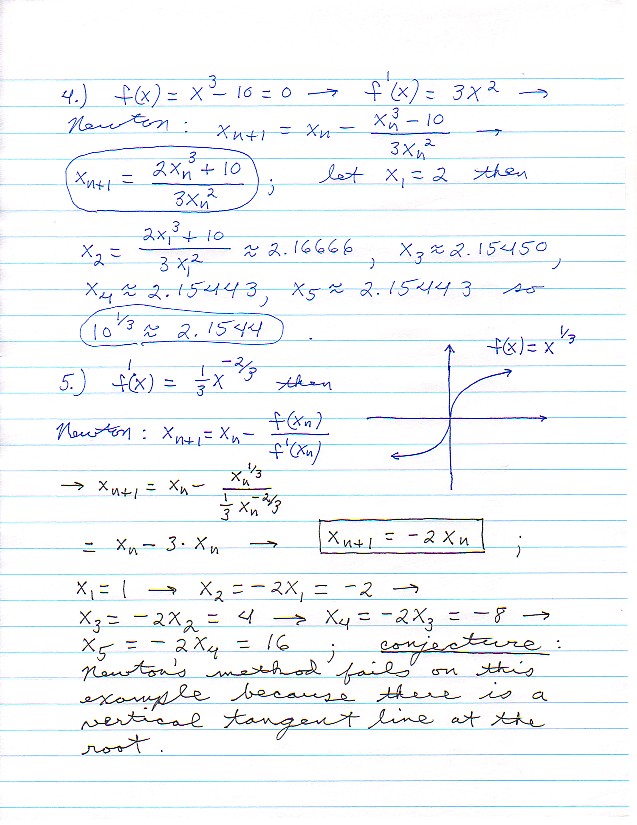 4.) f(x) = x³ - 10 = 0 → f'(x) = 3x² →
Newton : xₙ₊₁ = xₙ - (xₙ³ - 10)/(3xₙ²) →
xₙ₊₁ = (2xₙ³ + 10)/(3xₙ²) ; let x₁ = 2 then
x₂ = (2x₁³ + 10)/(3x₁²) ≈ 2.16666 , x₃ ≈ 2.15450 ,
x₄ ≈ 2.15443, x₅ ≈ 2.15443 so
10^(1/3) ≈ 2.1544 .
f(x) = x^(1/3)
5.) f'(x) = (1/3)x^(-2/3) then
Newton : xₙ₊₁ = xₙ - f(xₙ)/f'(xₙ)
→ xₙ₊₁ = xₙ - (xₙ^(1/3))/((1/3)xₙ^(-2/3))
= xₙ - 3·xₙ → xₙ₊₁ = -2xₙ ;
x₁ = 1 → x₂ = -2x₁ = -2 →
x₃ = -2x₂ = 4 → x₄ = -2x₃ = -8 →
x₅ = -2x₄ = 16 ; conjecture :
Newton's method fails on this
example because there is a
vertical tangent line at the
root .